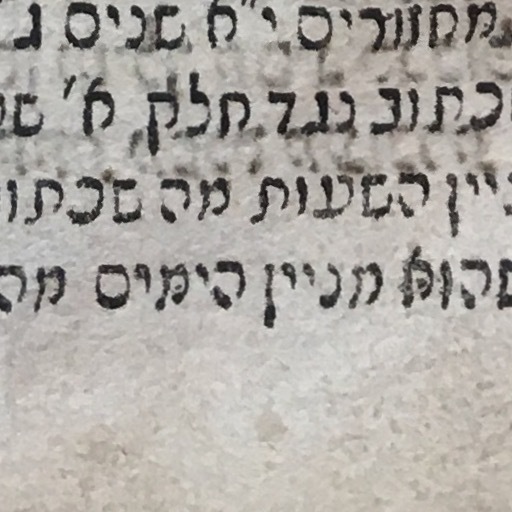 ממחזורים י״ח שנים נ
כתוב נגד חלק ח׳ שע
יין השעות מה שכתו
שהוא מניין הימים מה